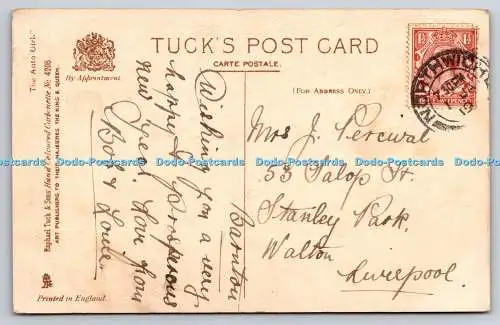 TUCK'S POST CARD
CARTE POSTALE.
By Appointment
(FOR ADDRESS ONLY.)
"The Auto Girl."
Raphael Tuck & Sons' Hand Coloured Carbonette No 4298
ART PUBLISHERS TO THEIR MAJESTIES THE KING & QUEEN.
Printed in England.
Barnton
Wishing you a very
happy & prosperous
new year. Love from
Bob &
Mrs J. Percival
53 Salop St.
Stanley Park.
Walton
Liverpool.
NORTHWICH
Dodo-Postcards Dodo-Postcards Dodo-Postcards Dodo-Postcards Dodo-Postcards